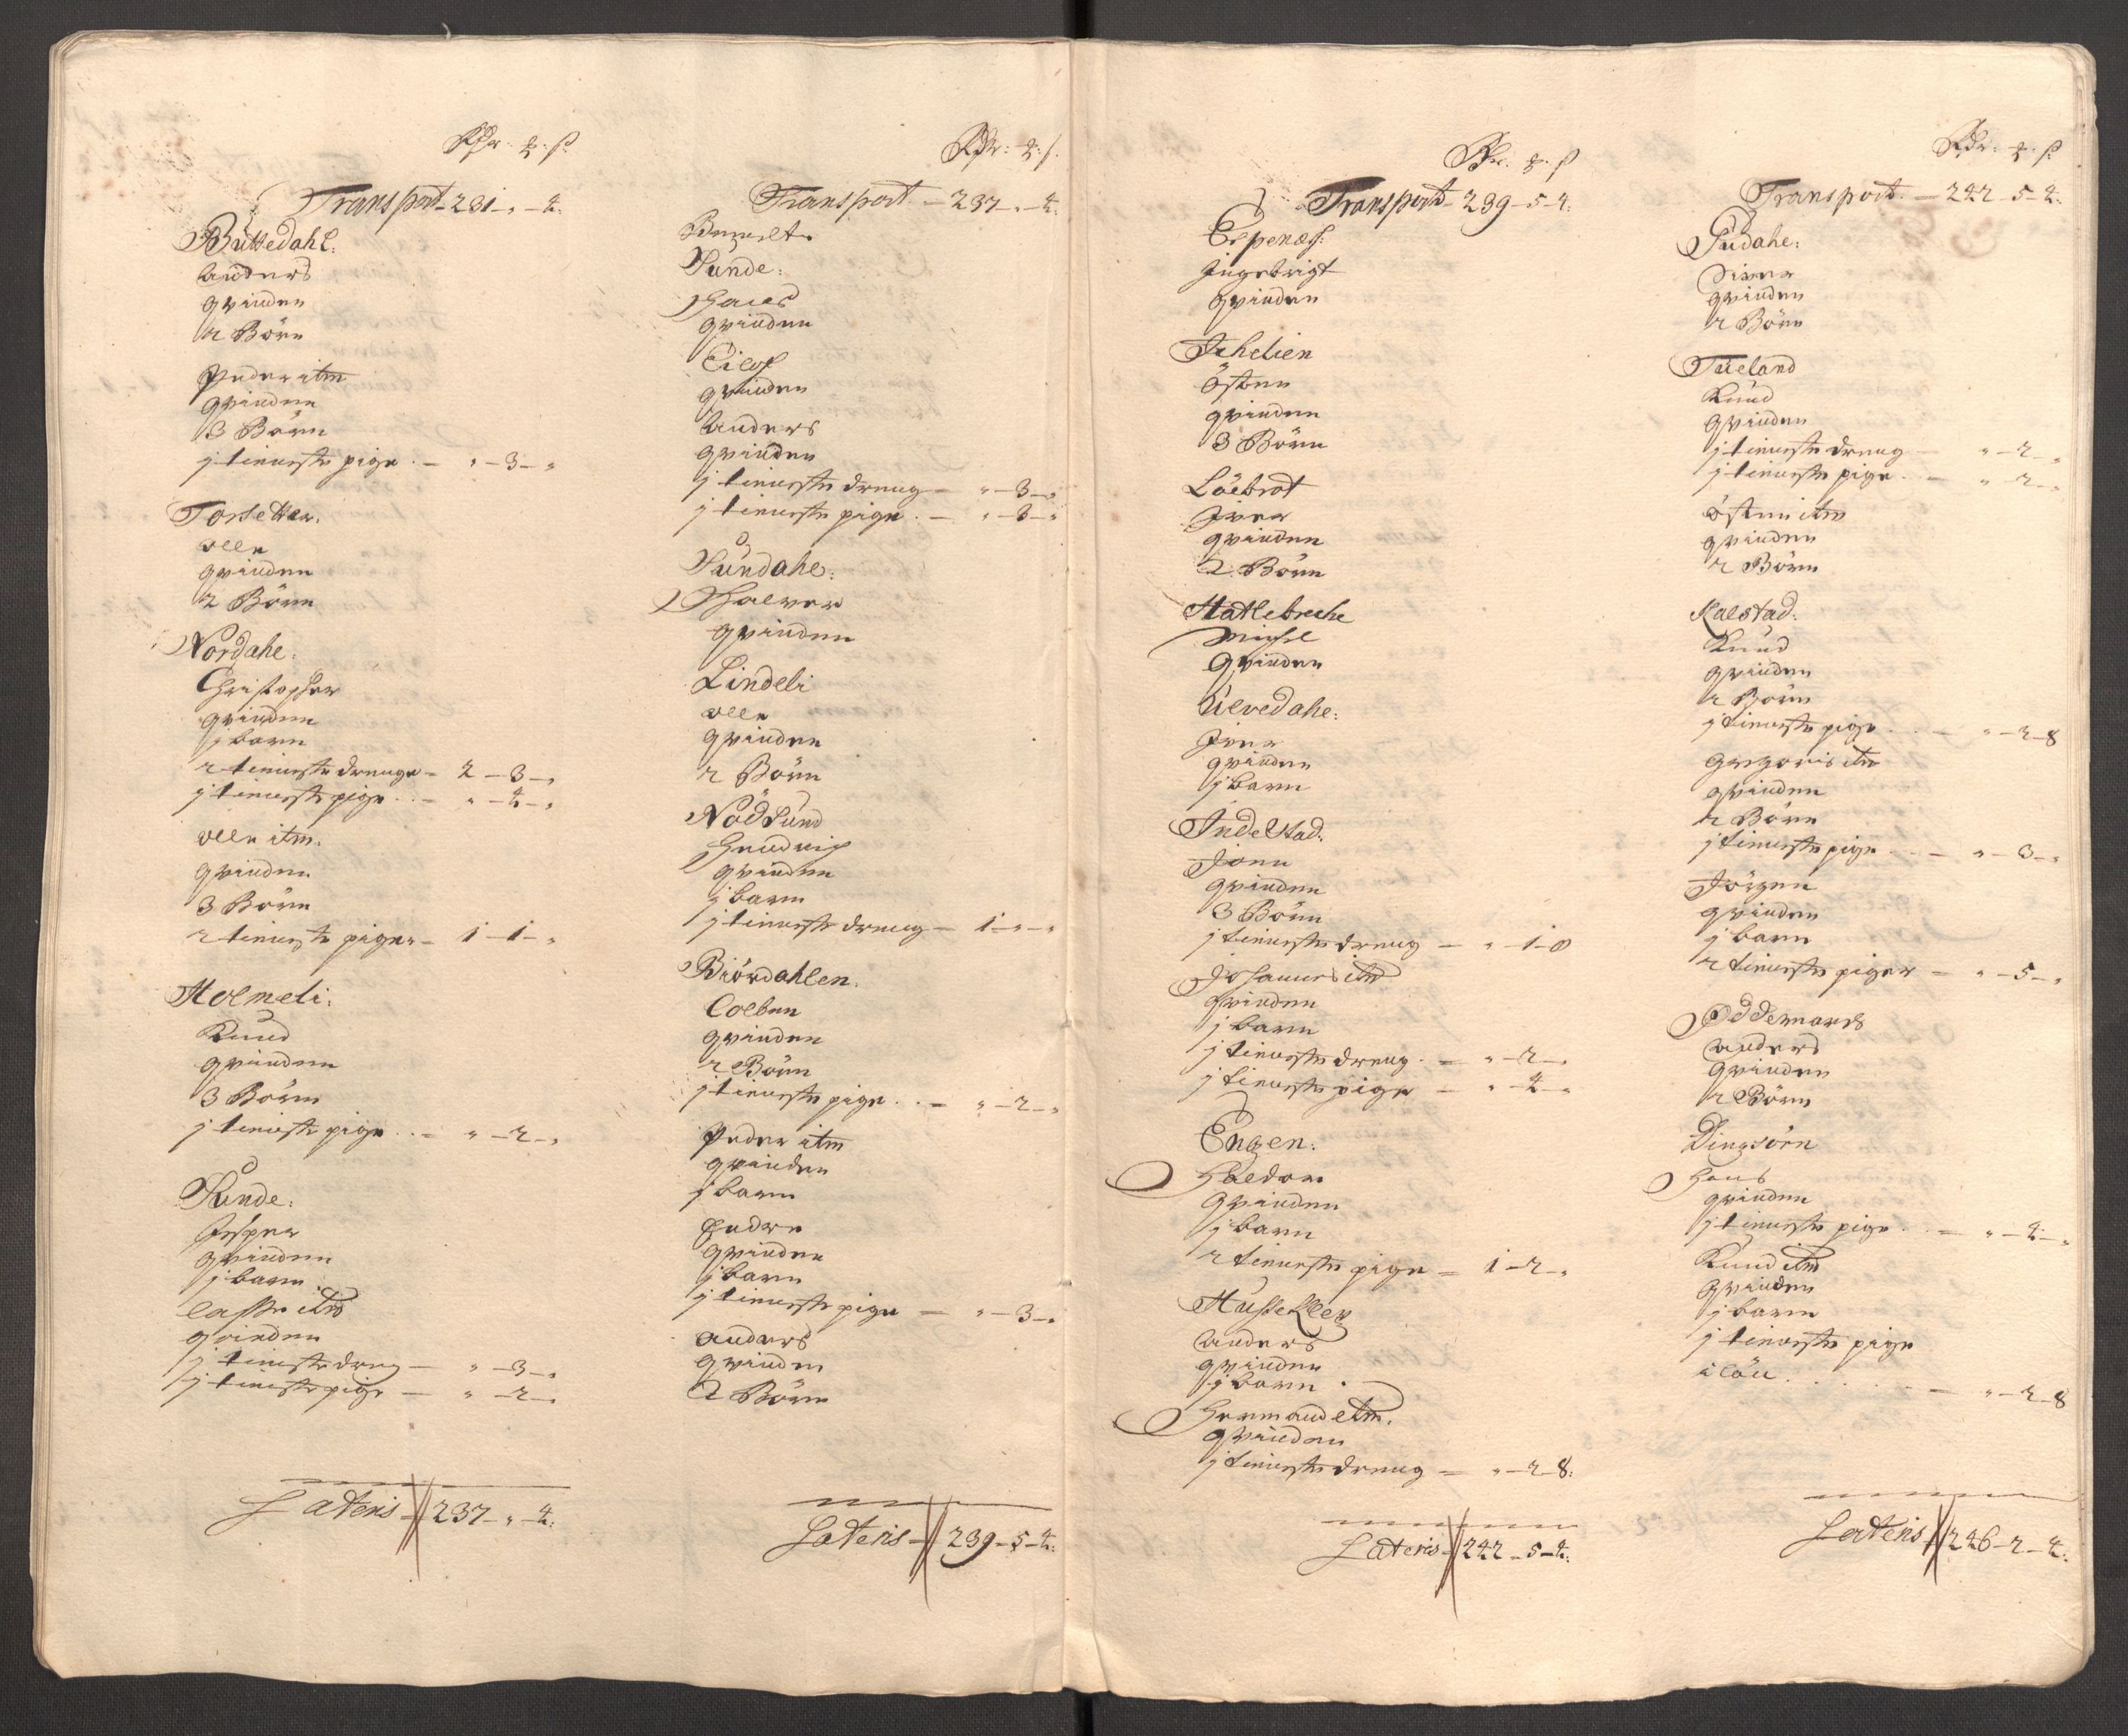 Rdr. ȝ. ß.
Transport - 231 - " - 4.
Büttedahl.
Anders
qvinden
2 Börn
Peder itm
qvinden
3 Börn
j tieneste pige - " - 3 - "
Torsetter.
olle
qvinden
2 Börn
Nordahl.
Christopher
qvinden
j barn
2 tieneste drenge - 2 - 3 - "
j tieneste pige - " - 4 - "
olle itm.
qvinden
3 Börn
2 tieneste piger - 1 - 1 - "
Holmeli.
Knud
qvinden
3 Börn
j tieneste pige - " - 2 - "
Sunde.
Jesper
qvinden
j barn
Lasse itm
qvinden
j tieneste dreng - " - 3 - "
j tieneste pige - " - 2 - "
Lateris - 237 - " - 4.
Rdr. ȝ. ß.
Transport - 237 - " - 4.
Sunde.
Hans
qvinden
Eilof
qvinden
Anders
qvinden
j tieneste dreng - " - 3 - "
j tieneste pige - " - 3 - "
Sündahl.
Halver
qvinden
Lindeli
olle
qvinden
2 Börn
Nödsund
Hendrich
qvinden
j barn
j tieneste dreng - 1 - " - "
Biördahlen.
Colben
qvinden
2 Börn
j tieneste pige - " - 2 - "
Peder itm
qvinden
j barn
Endre
qvinden
j barn
j tieneste pige - " - 3 - "
Anders
qvinden
2 Börn
Lateris - 239 - 5 - 4.
Rdr. ȝ. ß
Transport - 239 - 5 - 4.
Espenæs.
Jngebrigt
qvinden
Östen
qvinden
3 Börn
Löebrot
Jver
qvinden
2 Börn
Hatlebrecke
Michel
qvinden
Ulvedahl.
Jver
qvinden
j barn
Jndestad.
Jonn
qvinden
3 Börn
j tieneste dreng - " - 1 - 8
Johannes itm
qvinden
j barn
j tieneste dreng - " - 2 - "
j tieneste pige - " - 4 - "
Engen.
Haldor
qvinden
j barn
2 tieneste pige - 1 - 2 - "
Anders
qvinden
j barn
Hermand itm.
qvinden
j tieneste dreng - " - 2 - 8.
Lateris - 242 - 5 - 4.
Rdr. ȝ. ß.
Transport - 242 - 5 - 4.
Siver
qvinden
2 Börn
Tueland
Knud
qvinden
j tieneste dreng - " - 2 - "
j tieneste pige - " - 2 - "
östen itm
qvinden
2 Börn
Kalstad.
Knud
qvinden
2 Börn
j tieneste pige - " - 2 - 8
Gregoris itm
qvinden
2 Börn
j tieneste pige - " - 3 - "
Jörgen
qvinden
j barn
2 tieneste piger - " - 5 - "
Anders
qvinden
2 Börn
Dingsörn
Hans
qvinden
j tieneste pige - " - 4 - "
Knud itm
qvinden
j barn
j tieneste pige
- " - 2 - 8
Lateris - 246 - 2 - 4.